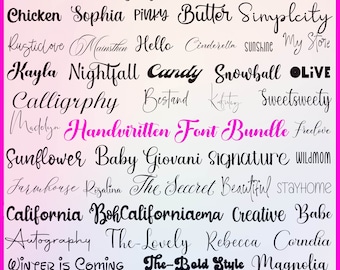 Chicken Sophia PINKY Butter Simplcity
Rusticlove Moonsthin Hello Cinderella SUNSHINE My Store
Kayla Nightfall Candy Snowball OLIVE
Calligrphy Bestand Sweetsweety
Madelyn Handviritten Font Bundle Freelove
Sunflower Baby Giovani Signature WILDMOM
Farmhouse Rosalina The Secret Beautiful STAYHOME
California BohCaliforniaema Creative Babe
Autography The-Lovely Rebecca Cornelia
WINTER is COMING The-Bold Style Magnolia